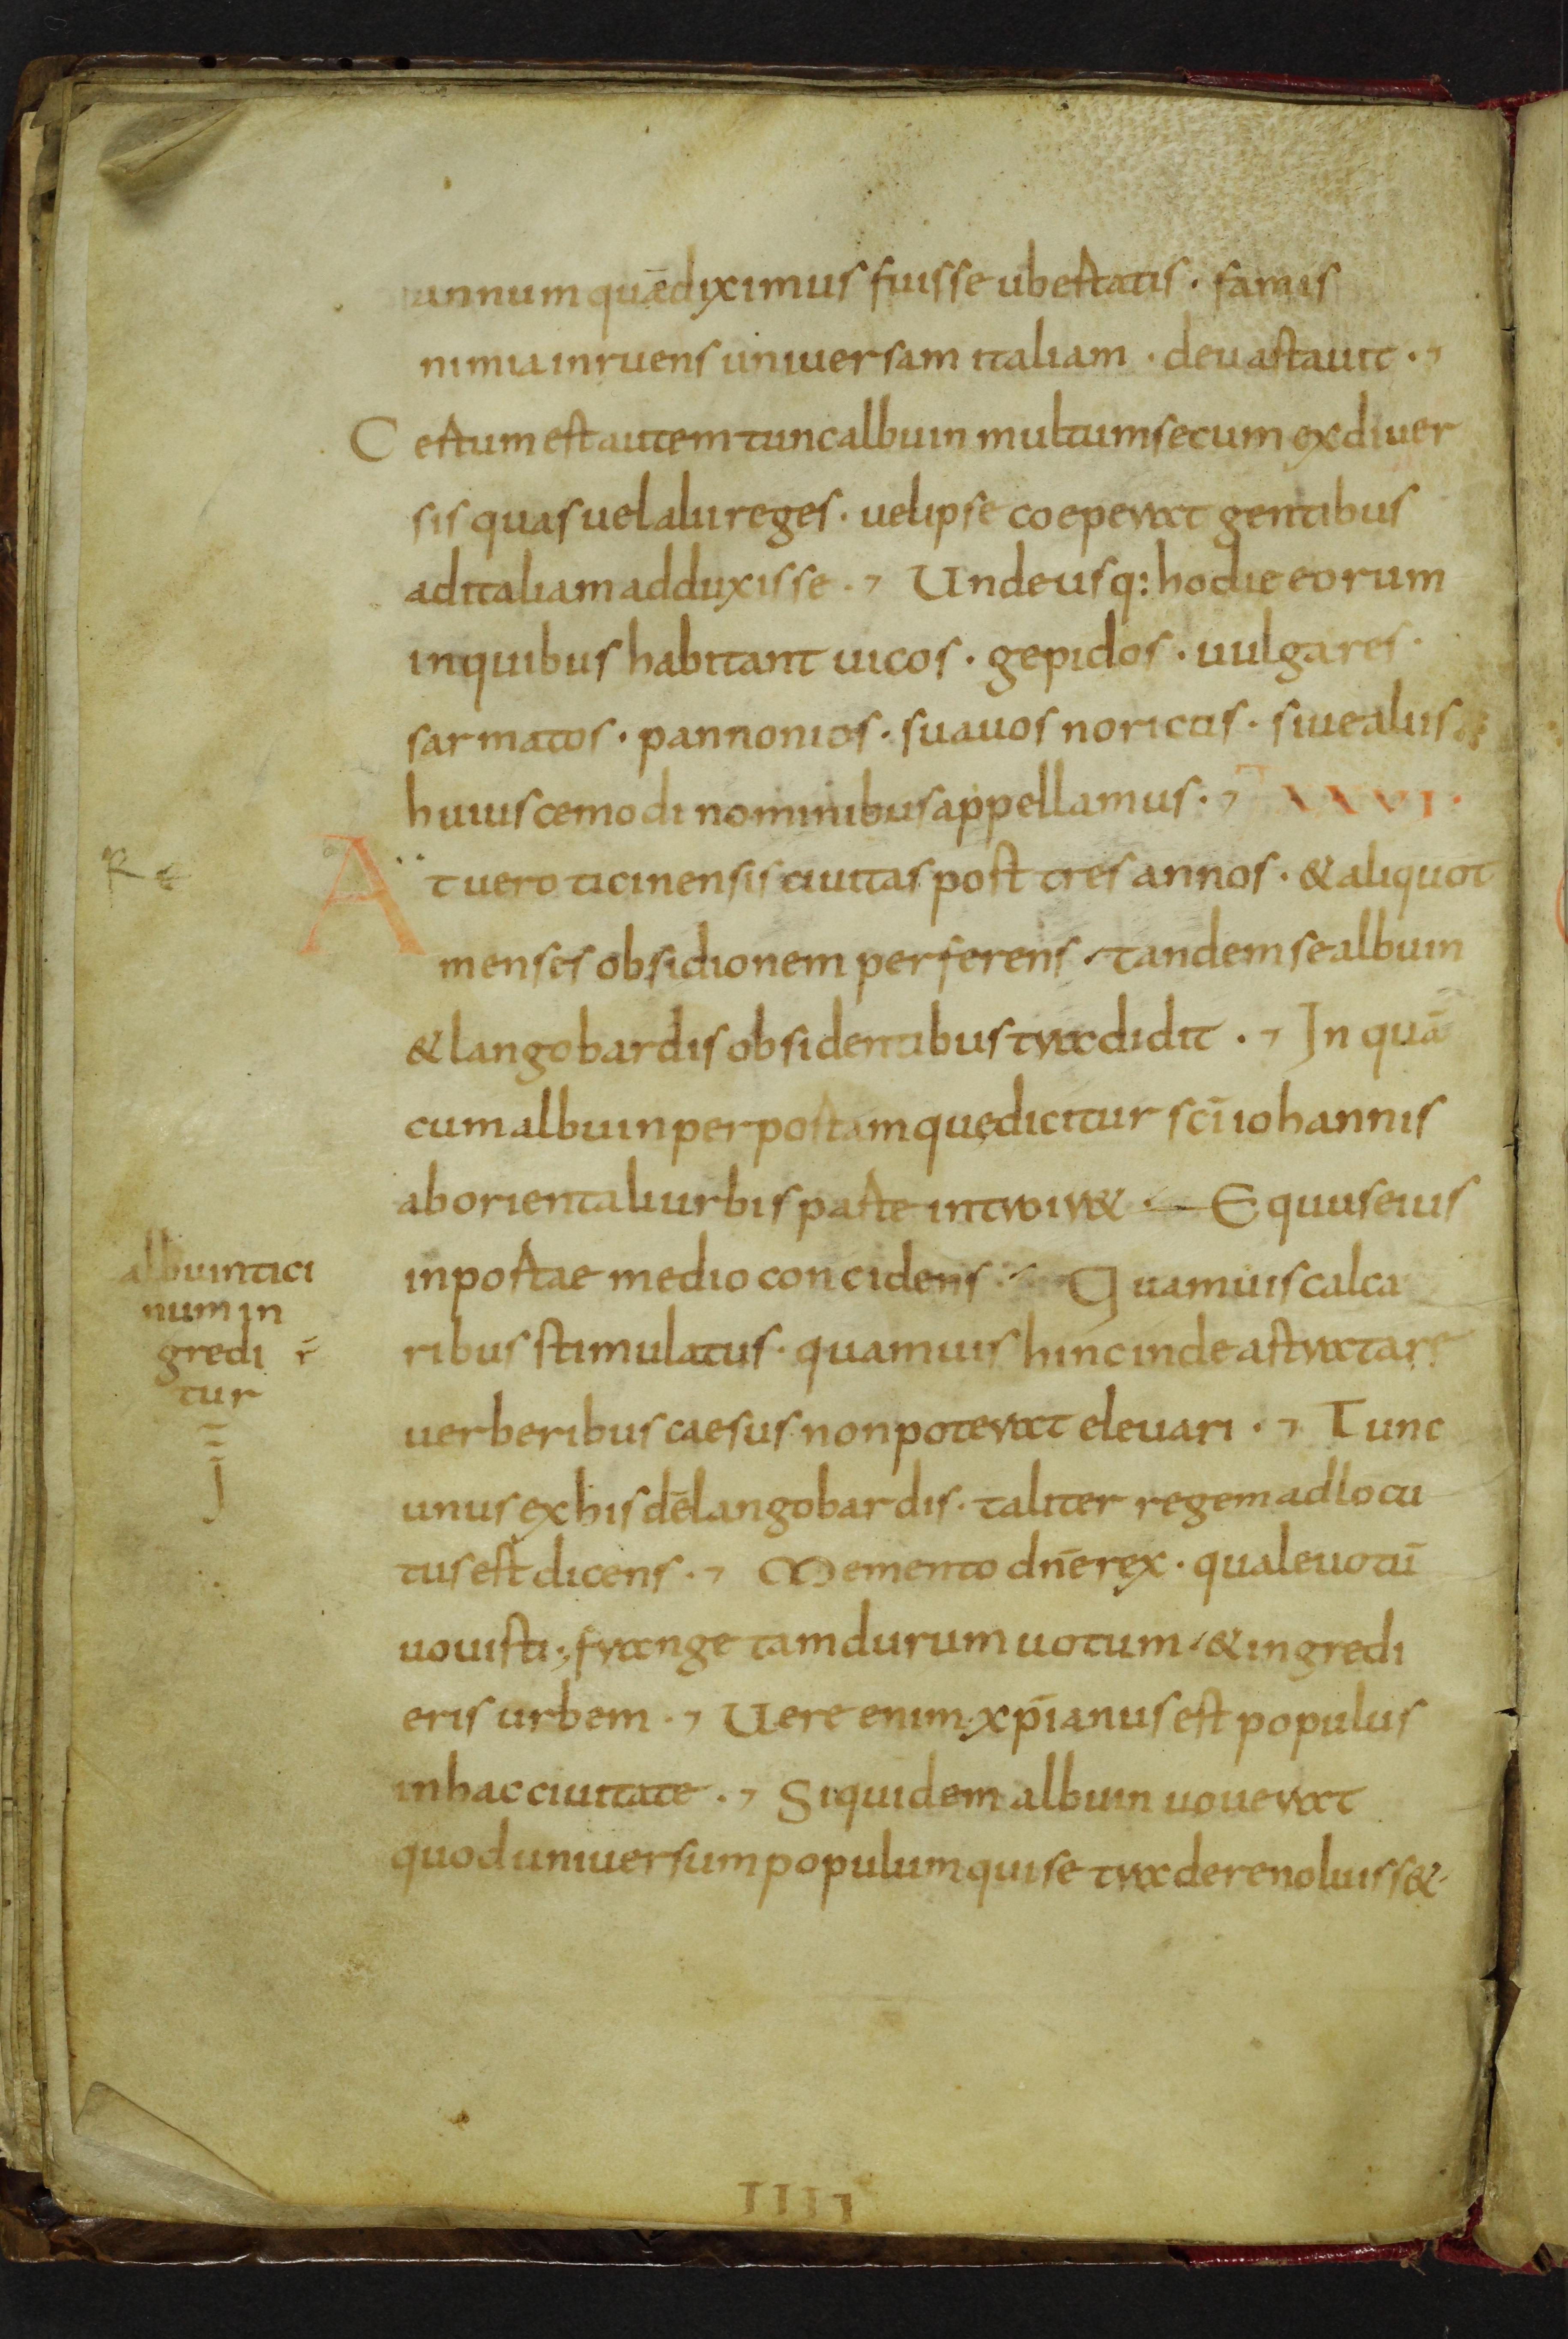 annum quā diximus fuisse ubertatis · famis
nimia inruens uniuersam italiam · deuastauit ·
Certum est autem tunc albuin multum secum ex diuer
sis quas uel alii reges · uel ipse coeperat gentibus
ad italiam adduxisse · Unde usq: hodie eorum
in quibus habitant uicos · gepidos · uulgares ·
sarmatos · pannonios · suauos noricus · siue aliis
huiuscemodi nominibus appellamus · XXVI ·
At uero ticinensis ciuitas post tres annos · & aliquot
menses obsidionem perferens · tandem se albuin
& langobardis obsidentibus tradidit · In quā
cum albuin per portam quę dicitur sc̄i iohannis
ab orientali urbis parte introir& · Equus eius
in portae medio concidens · Quamuis calca
ribus stimulatus · quamuis hinc inde astratare
uerberibus caesus non poterat eleuari · Tunc
unus ex hisdē langobardis · taliter regem adlocu
tus est dicens · Memento dn̄e rex · quale uotū
uouisti · frange tam durum uotum · & ingredi
eris urbem · Uere enim xp̄ianus est populus
in hac ciuitate · Siquidem albuin uouerat
quod uniuersum populum qui se tradere noluiss& ·
albuin tici
num in
gredi r̄
tur
IIII